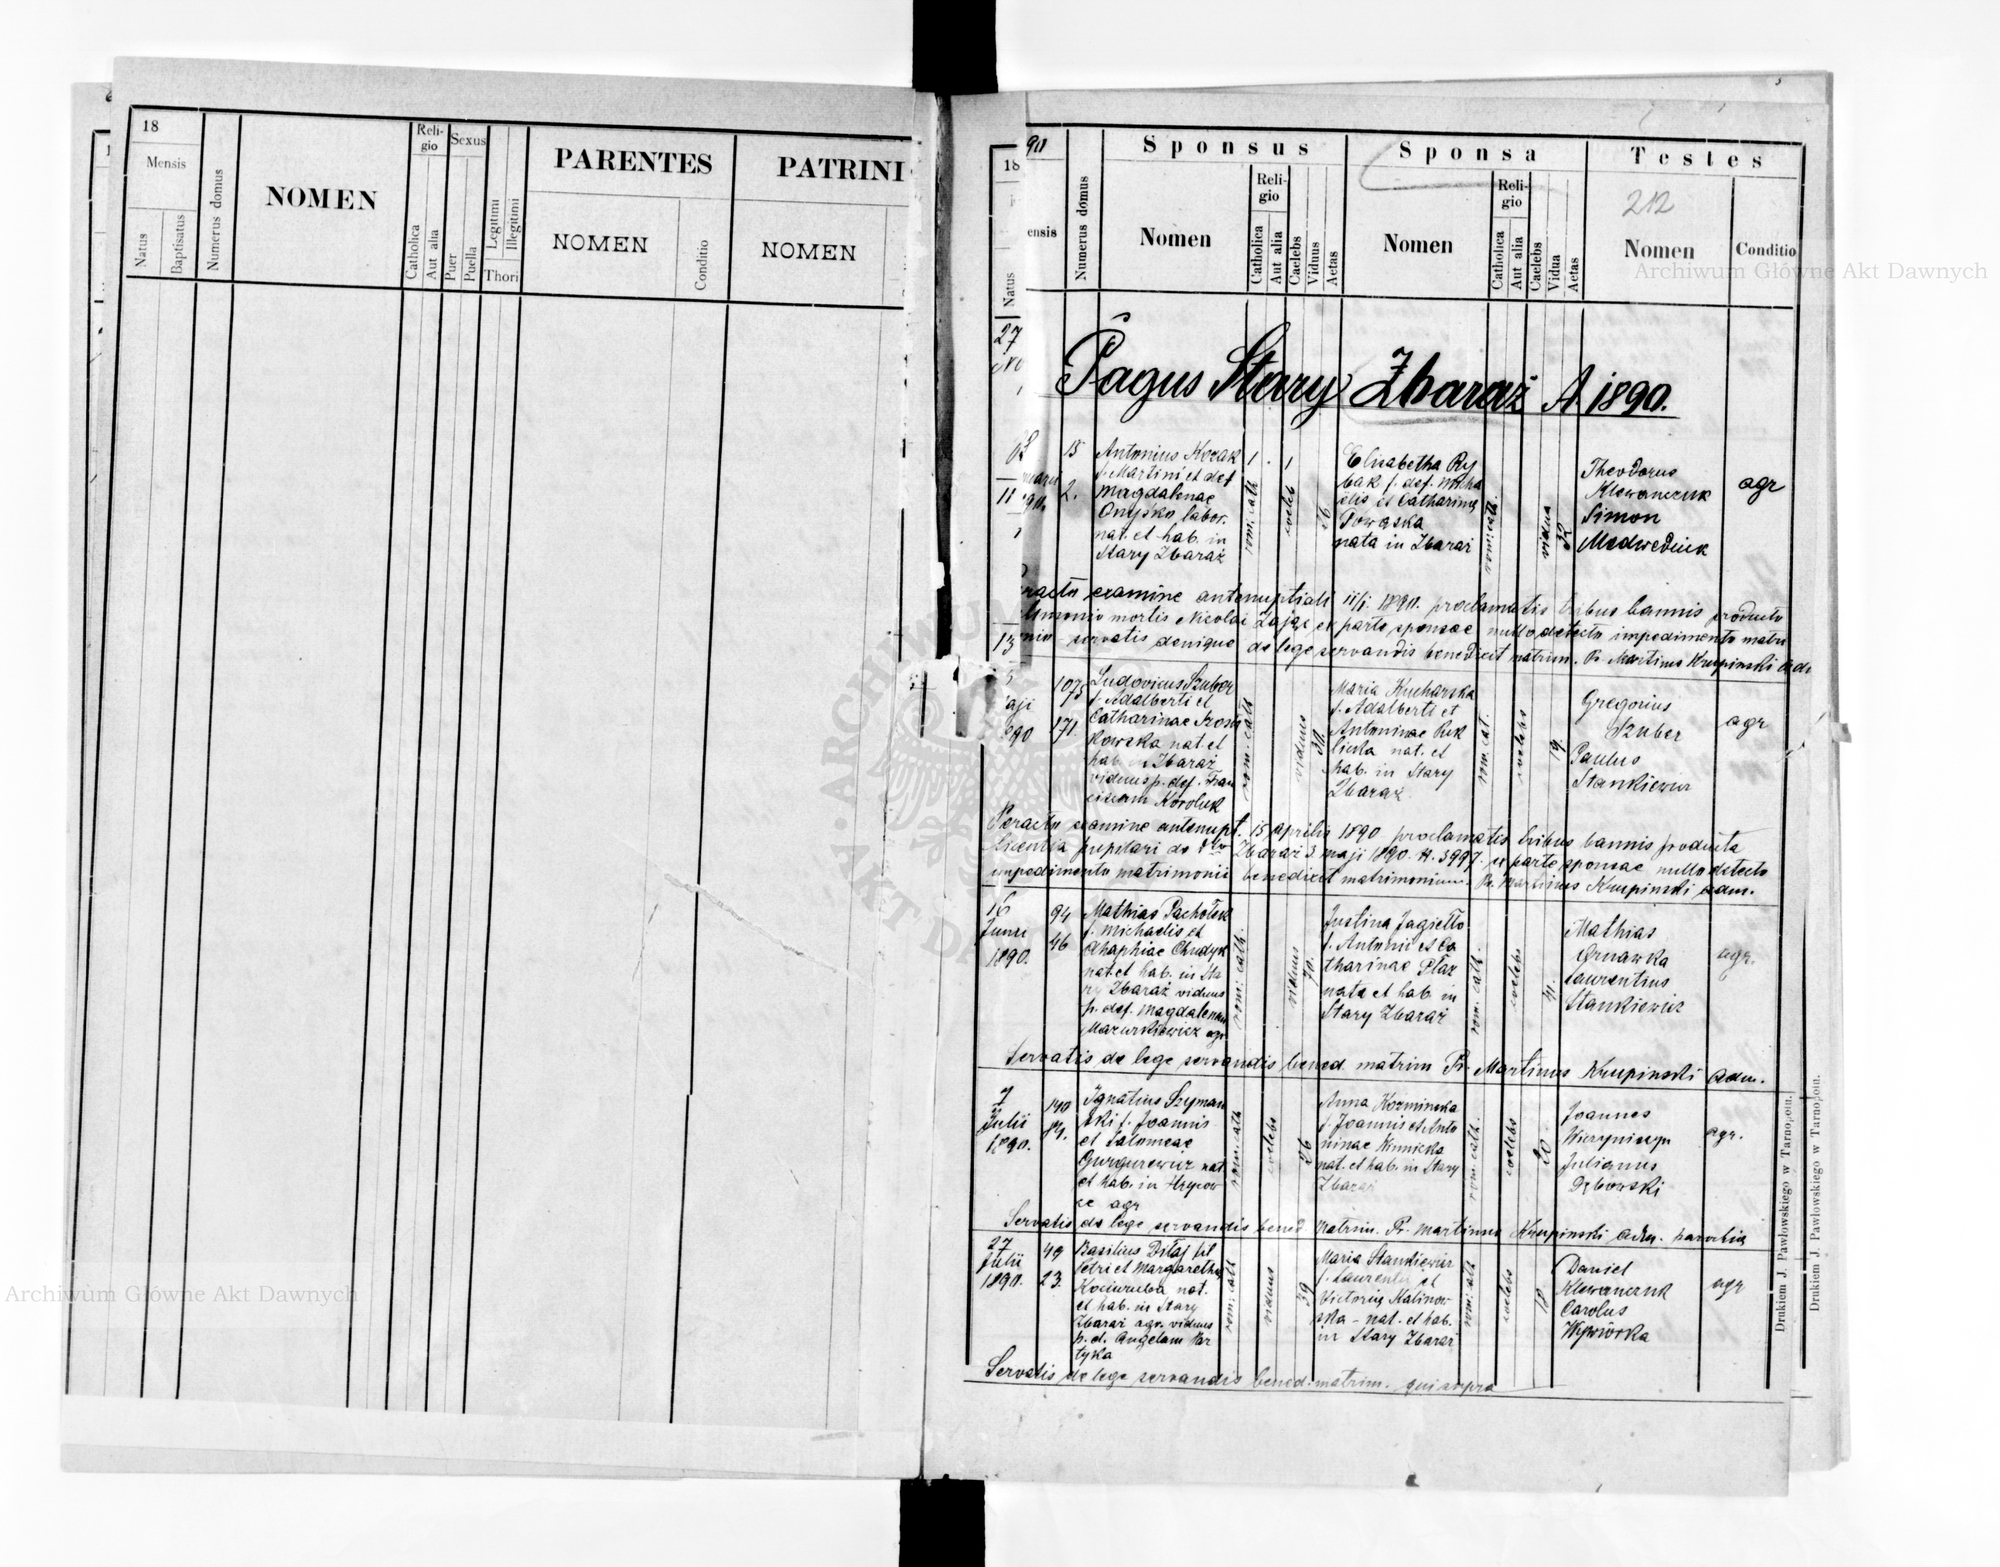 18
Mensis
Natus
Baptisatus
Numerus domus
NOMEN
Religio
Catholica
Aut alia
Sexus
Puer
Puella
Legitimi
Illegitimi
Thori
PARENTES
NOMEN
Conditio
PATRINI
NOMEN
18
90
ensis
Natus
Numerus domus
Sponsus
Nomen
Reli-
gio
Catholica
Aut alia
Caelebs
Viduus
Aetas
Sponsa
Nomen
Reli-
gio
Catholica
Aut alia
Caelebs
Vidua
Aetas
Testes
212
Nomen
Conditio
Archiwum Główne Akt Dawnych
Pagus Stary Zbaraż A 1890.
15
2.
Antonius Kozak
f. Martini et def
Magdalenae
Onyśko labor.
nat. et hab. in
Stary Zbaraż
rom. cath
coeleb
26
Elisabetha Ry
bak f. def. Micha
elis et Catharina
nata in Zbaraż
rom. cath.
vidua
32
Theodorus
Klowanczuk
Simon
Medwediuk
agr
examine antenuptiali 11/1. 1890. proclamatis tribus bannis producto
mortis Nicolai Zając ex parte sponsae nullo detecto impedimento matri
servatis denique de lege servandis benedixit matrim. Pr. Martinus Krupinski
107
171
Ludovicus Szuber
f. Adalberti et
Catharinae
kowska nat. et
hab. in Zbaraż
viduus p. def. Fran
ciscam Koroluk
rom. cath
viduus
30.
Maria Kucharska
f. Adalberti et
Antoninae
nat. et
hab. in Stary
Zbaraż
rom. cat.
coelebs
19.
Gregorius
Szuber
Paulus
Stankiewicz
agr
Peracto examine antenupt. 15 aprilis 1890 proclamatis tribus bannis producta
licentia pupilari de Zbaraż 3. maji 1890. N. 3997. ex parte sponsae nullo detecto
impedimento matrimonii benedixit matrimonium. Pr. Martinus Krupinski adm.
16
Junii
1890.
94
46
Mathias Pachołek
f. Michaelis et
Ahaphiae Chudyk
nat. et hab. in Sta
ry Zbaraż viduus
p. def. Magdalenam
Mazurkiewicz agr
rom. cath.
viduus
70.
Justina Jagiełło
f. Antonii et Ca
tharinae Płaz
nata et hab. in
Stary Zbaraż
rom. cath.
coelebs
41.
Mathias
Laurentius
Stankiewicz
agr.
Servatis de lege servandis bened. matrim Pr. Martinus Krupinski adm.
7
Julii
1890.
190
Ignatius Szyman
ski f. Joannis
et Salomeae
nat
et hab. in
ce agr
rom. cath
coelebs
26
Anna Kozminska
f. Joannis et Anto
ninae Winnicka
nat. et hab. in Stary
Zbaraż
rom. cath.
coelebs
20
Joannes
Julianus
Dębowski
agr.
Servatis de lege servandis bened matrim. Pr. Martinus Krupinski adm. parochiae
27
Julii
1890.
49
23.
Basilius Diłaj fil
Petri et Margaretha
Kociuruba nat.
et hab. in Stary
Zbaraż agr. viduus
p. d. Angelam Par
tyka
rom. cath
viduus
39
Maria Stankiewicz
f. Laurentii et
Victoria Kalinow
ska - nat. et hab.
in Stary Zbaraż
rom. cath
coelebs
18
Daniel
Klowanczuk
Carolus
Wywiórka
agr
Servatis de lege servandis bened. matrim. qui supra
Drukiem J. Pawłowskiego w Tarnopolu.
Drukiem J. Pawłowskiego w Tarnopolu.
Archiwum Główne Akt Dawnych